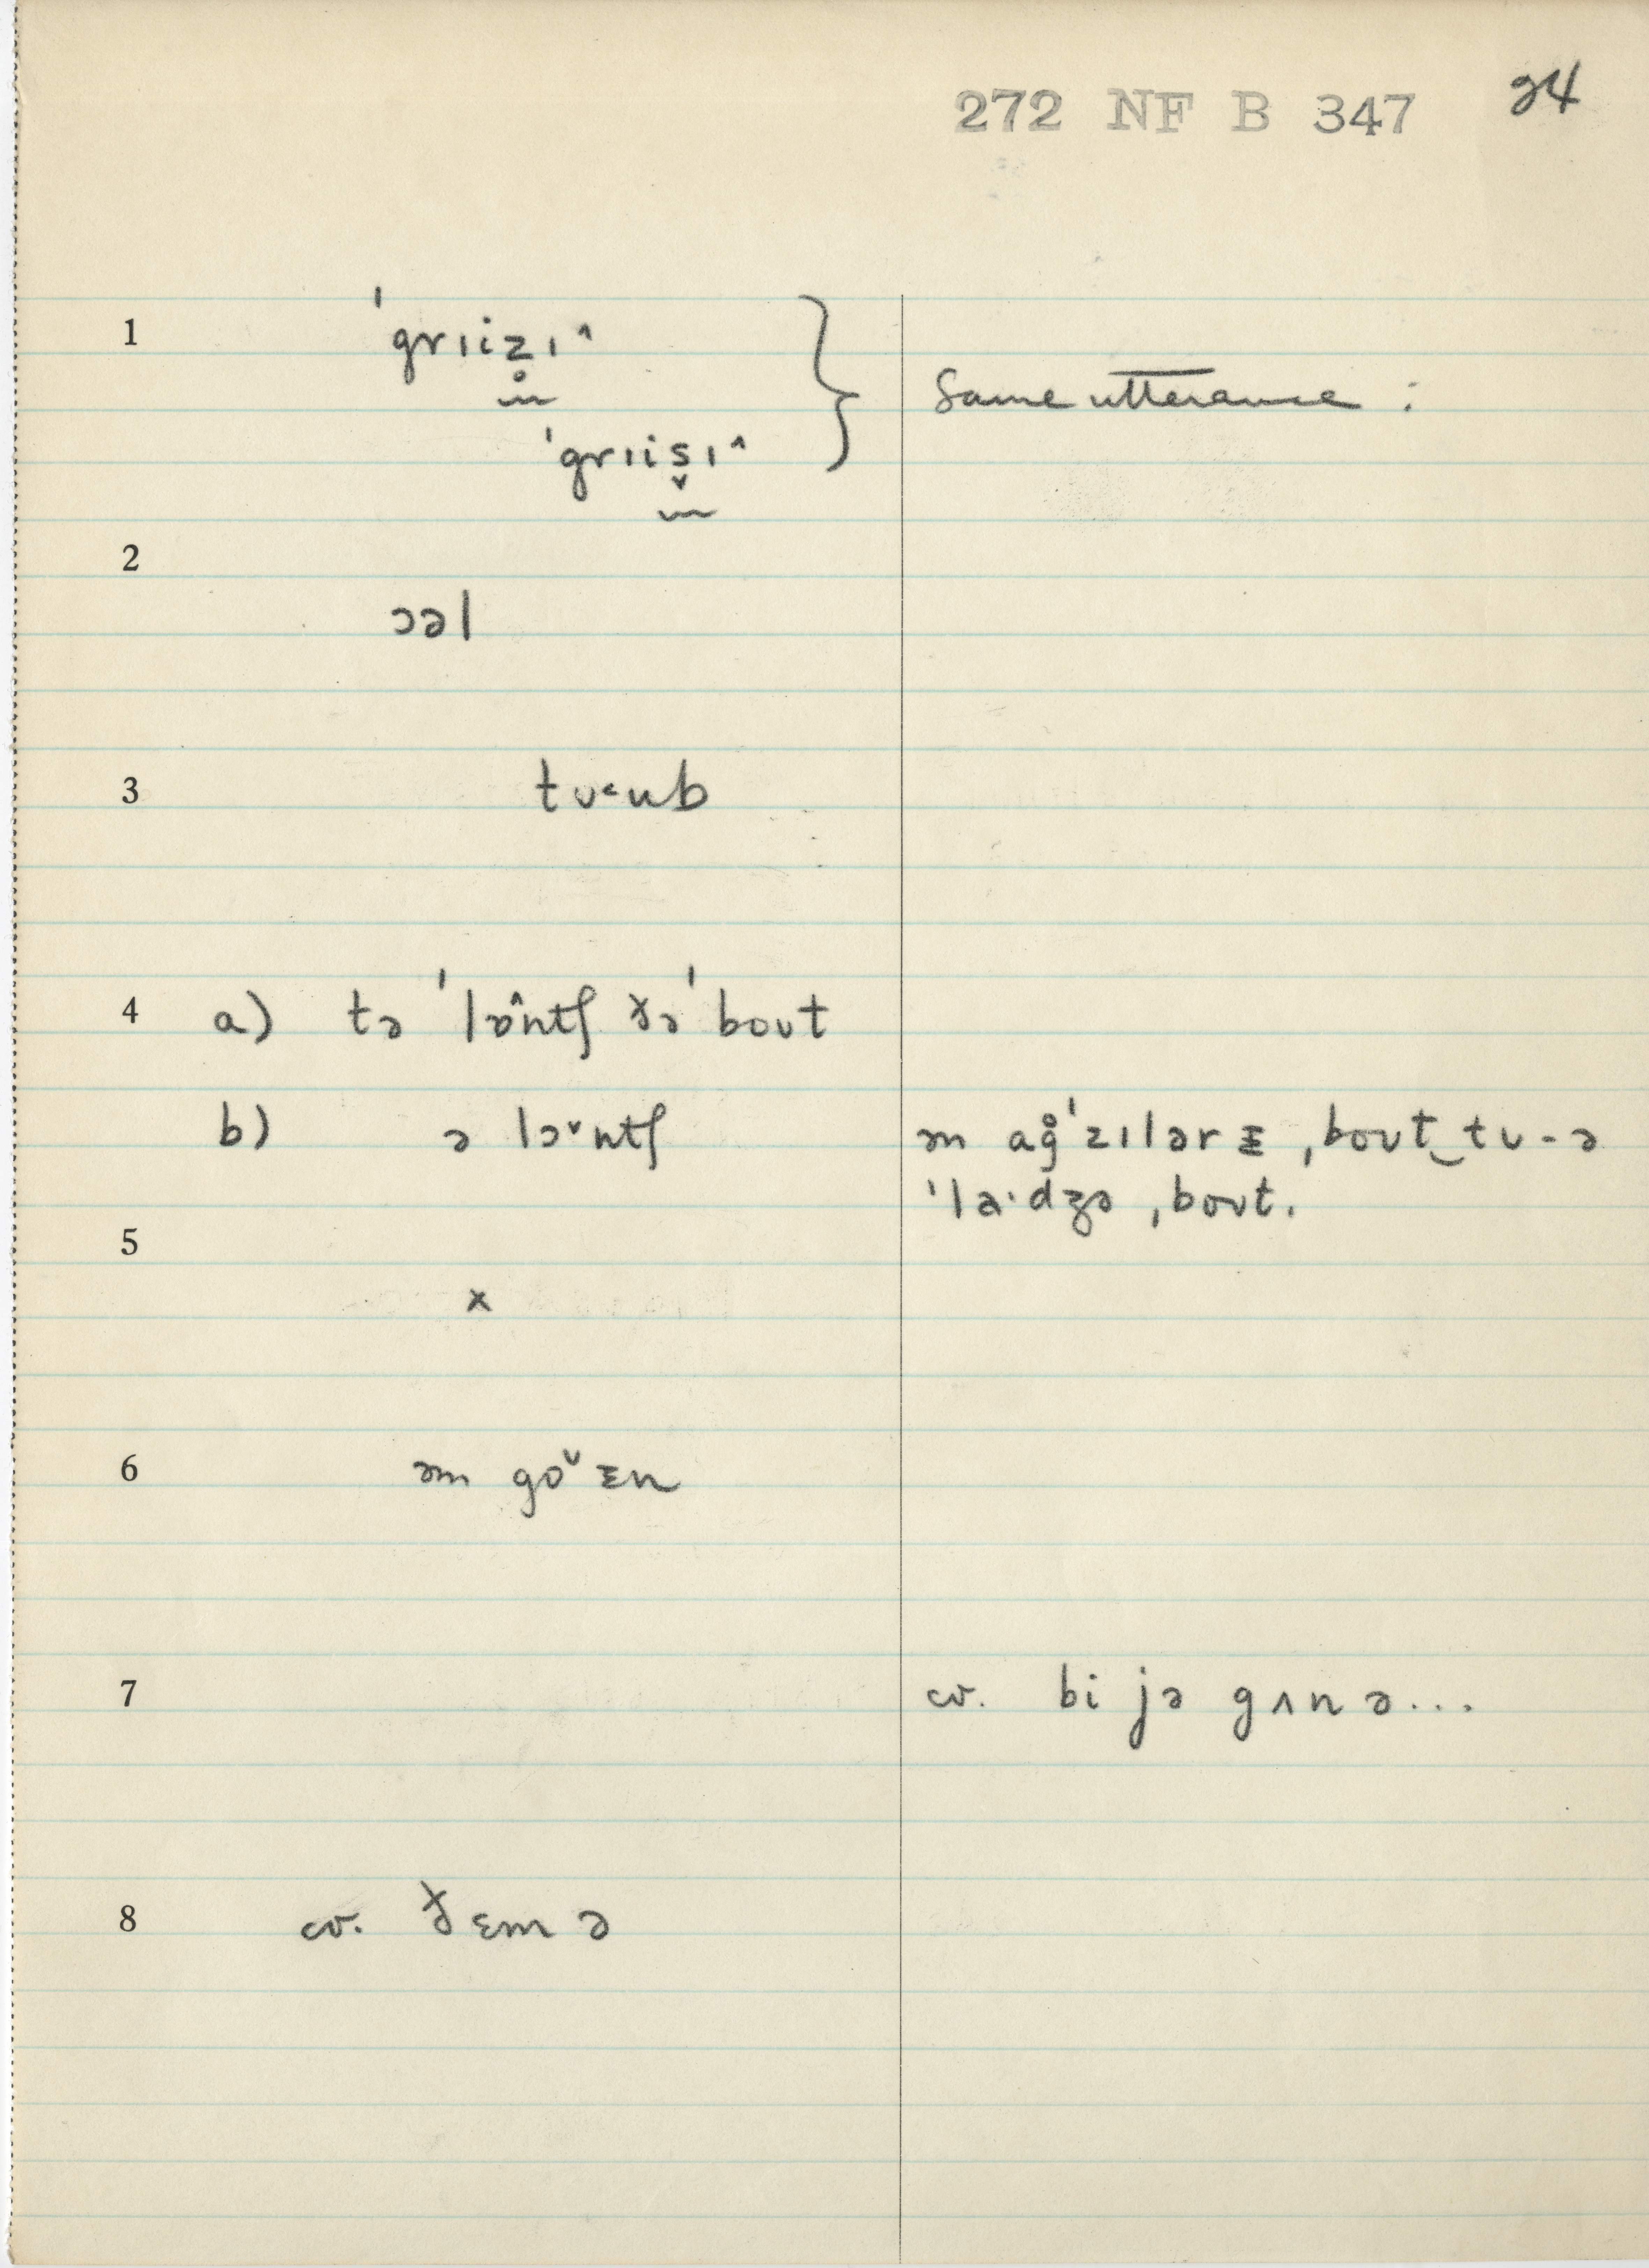 272 NF B 347 24
1 ˈgrɪiz̥ɪ^
Same utterance :
ˈgrɪis̬ɪ^
2
ɔəl
3 tʊ˂ub
4 a) tə ˈlɒ̂ntʃ ðə ˈboʊt
b) ə lɔˇntʃ
ən ag̊ˈzɪlərɛ ˌboʊt‿tʊ-ə
ˈla·dʒə ˌboʊt.
5
x
6 ən goˇɛn
7 cv. bi jə gʌn ə...
8 cv. ðɛm ə